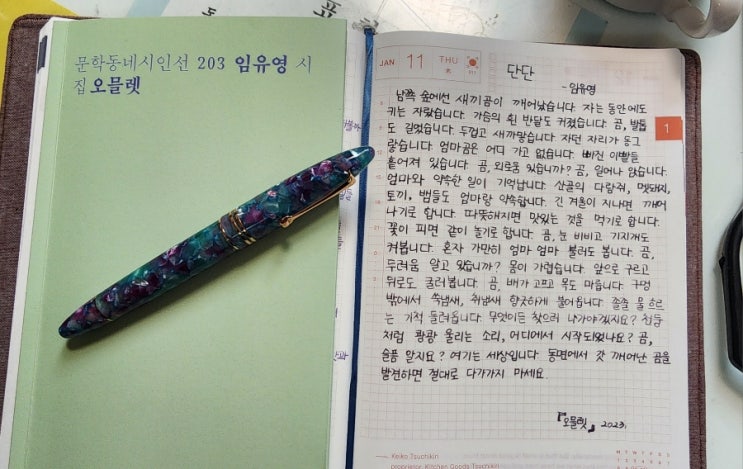 문학동네시인선 203 임유영 시
집 오믈렛
JAN 11 THU
단단
-임유영
1
남쪽 숲에선 새끼곰이 깨어났습니다 자는 동안에도
귀는 자랐습니다 가슴의 흰 반달도 커졌습니다 곰, 발톱
도 길었습니다 두껍고 새까맣습니다 자던 자리가 동그
랗습니다 엄마곰은 어디 가고 없습니다 빠진 이빨들
흩어져 있습니다 곰, 외로움 있습니까? 곰, 일어나 앉습니다
엄마와 약속한 일이 기억납니다 산골의 다람쥐, 멧돼지,
토끼, 뱀들도 엄마랑 약속합니다 긴 겨울이 지나면 깨어
나기로 합니다 따뜻해지면 맛있는 것을 먹기로 합니다
꽃이 피면 같이 놀기로 합니다 곰, 눈 비비고 기지개도
켜봅니다 혼자 가만히 엄마 엄마 불러도 봅니다 곰,
두려움 알고 있습니까? 몸이 가렵습니다 앞으로 구르고
뒤로도 굴러봅니다 곰, 배가 고프고 목도 마릅니다 구멍
밖에서 쑥냄새, 취냄새 향긋하게 불어옵니다 졸졸 물 흐르
는 기척 들려옵니다 무엇이든 찾으러 나가야겠지요? 천둥
처럼 쾅쾅 울리는 소리, 어디에서 시작되었나요? 곰,
슬픔 알지요? 여기는 세상입니다 동면에서 갓 깨어난 곰을
발견하면 절대로 다가가지 마세요
『오믈렛』 2023.
Keiko Tsuchikiri
proprietor, Kitchen Goods Tsuchikiri
M T W T F S S